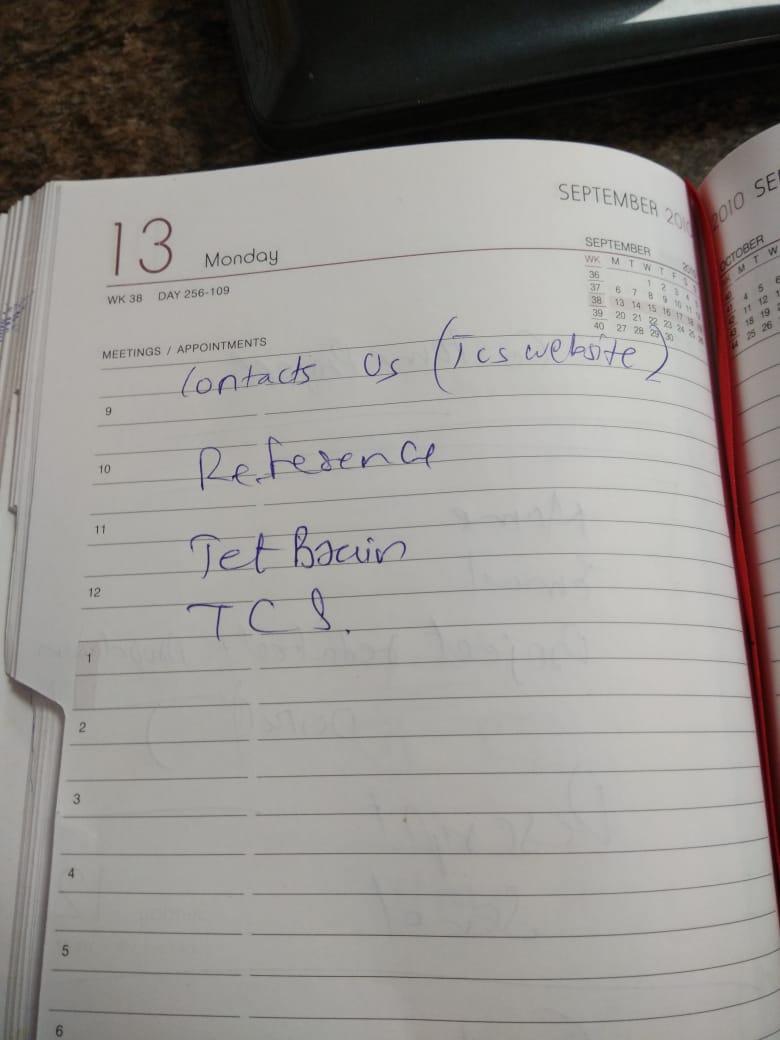 SEPTEMBER 2010
13 Monday
WK 38 DAY 256-109
SEPTEMBER 2010
WK M T W T F S S
36 1 2 3 4
37 6 7 8 9 10 11
38 13 14 15 16 17 18
39 20 21 22 23 24 25
40 27 28 29 30
MEETINGS / APPOINTMENTS
Contacts Us (Tcs website)
9
10 Reference
11
Jet Brain
12
TCS.
1
2
3
4
5
6
2010
OCTOBER
M T W
4 5
11 12
18 19
25 26